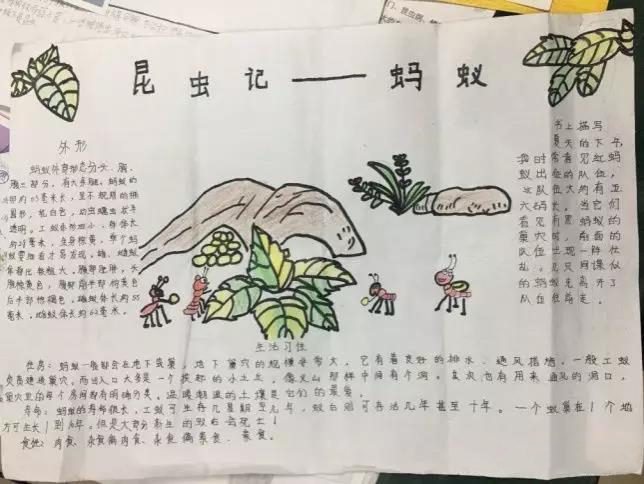 昆虫记——蚂蚁
外形
蚂蚁外部形态分头、胸、
腹三部分,有六条腿。蚂蚁的
卵约0.5毫米长,呈不规则的椭
圆形,乳白色,幼虫蠕虫状半
透明。工蚁体形细小,身体长
约2.8毫米,全身棕黄,单个蚂
蚁要细看才易发现。雄、雌蚁
体都比较粗大。腹部肥胖,头
胸棕黄色,腹部前半部棕黄色
后半部棕褐色。雄蚁体长约5.5
毫米,雌蚁体长约6.2毫米。
书上描写
夏天的下午,
我时常看见红蚂
蚁出征的队伍,
这队伍大约有五
六码长。当它们
看见有黑蚂蚁的
巢穴时,前面的
队伍出现一阵忙
乱。
的蚂蚁先离开了
队伍往前走。
生活习性
住房:蚂蚁一般都会在地下筑巢,地下巢穴的规模非常大。它有着良好的排水、通风措施。一般工蚁
负责建造巢穴,而出入口大多是一个拱起的小土丘,像火山那样中间有个洞。其次也有用来通风的洞口,
巢穴里的每个房间都有明确分类。温暖潮湿的土壤是它们的最爱。
寿命:蚂蚁的寿命很长,工蚁可生存几星期至几年,蚁后则可存活几年甚至十年。一个蚁巢在1个地
方可生长1到10年。但是大部分新生的蚁后会死亡!
食性:肉食、杂食偏肉食、杂食、杂食偏素食、素食。